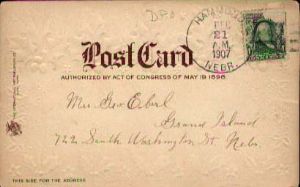 DPO
DEC
21
A.M.
1907
NEBR.
Post Card
AUTHORIZED BY ACT OF CONGRESS OF MAY 19 1898.
Mrs Geo Eberl
Grand Island
722 South Washington St. Nebr
THIS SIDE FOR THE ADDRESS